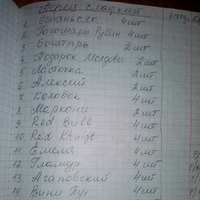 Перец сладкий
1. Испаньола 4 шт
2. Гогошары Рубин 4 шт
3. Богатырь 2 шт
4. Подарок Молдова 2 шт
5. Ласточка 2 шт
6. Алексий 2 шт
7. Колобок 4 шт
8. Маркони 2 шт
9. Red Bull 4 шт
10. Red Knight 4 шт
11. Емеля 4 шт
12. 4 шт
13. Агаповский 4 шт
14. Вини Пух 4 шт